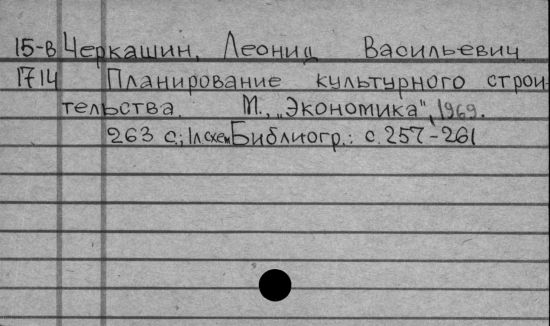 15-В Черкашин, Леонид Васильевич
1714 Планирование культурного строи-
тельства. М., „Экономика", 1969.
263 с.; 1 л. схем Библиогр.: с. 257-261